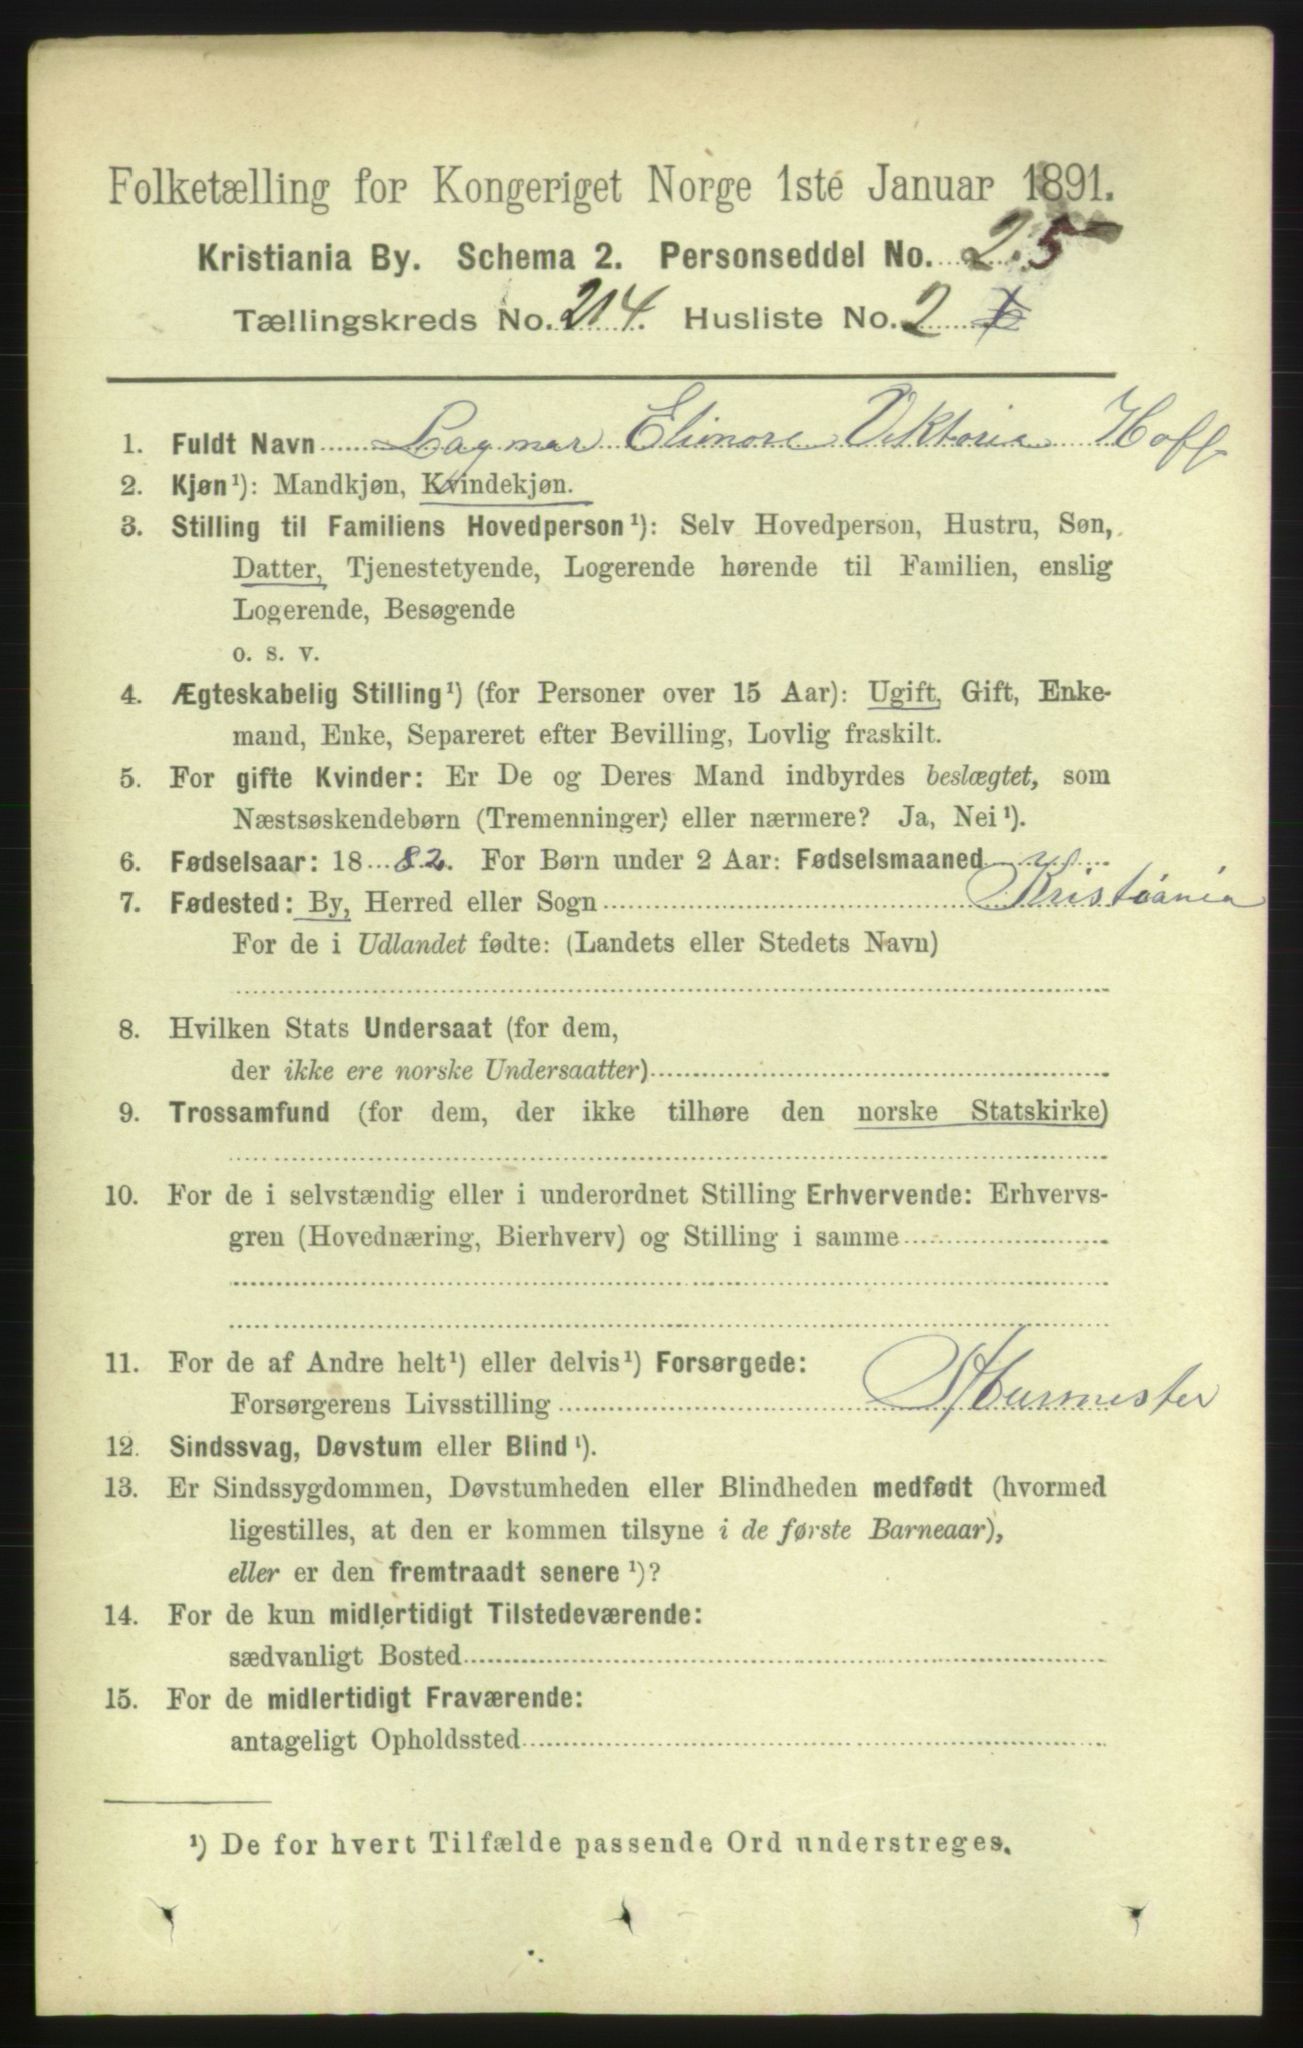 Folketælling for Kongeriget Norge 1ste Januar 1891.
Kristiania By. Schema 2. Personseddel No. 25
Tællingskreds No. 214. Husliste No. 2
1. Fuldt Navn Dagmar Elinore Viktoria Hoff
2. Kjøn¹): Mandkjøn, Kvindekjøn.
3. Stilling til Familiens Hovedperson¹): Selv Hovedperson, Hustru, Søn,
Datter, Tjenestetyende, Logerende hørende til Familien, enslig
Logerende, Besøgende
o. s. v.
4. Ægteskabelig Stilling¹) (for Personer over 15 Aar): Ugift, Gift, Enke-
mand, Enke, Separeret efter Bevilling, Lovlig fraskilt.
5. For gifte Kvinder: Er De og Deres Mand indbyrdes beslægtet, som
Næstsøskendebørn (Tremenninger) eller nærmere? Ja, Nei¹).
6. Fødselsaar: 1882. For Børn under 2 Aar: Fødselsmaaned
7. Fødested: By, Herred eller Sogn Kristiania
For de i Udlandet fødte: (Landets eller Stedets Navn)
8. Hvilken Stats Undersaat (for dem,
der ikke ere norske Undersaatter)
9. Trossamfund (for dem, der ikke tilhøre den norske Statskirke)
10. For de i selvstændig eller i underordnet Stilling Erhvervende: Erhvervs-
gren (Hovednæring, Bierhverv) og Stilling i samme
11. For de af Andre helt¹) eller delvis¹) Forsørgede:
Forsørgerens Livsstilling Murmester
12. Sindssvag, Døvstum eller Blind¹).
13. Er Sindssygdommen, Døvstumheden eller Blindheden medfødt (hvormed
ligestilles, at den er kommen tilsyne i de første Barneaar),
eller er den fremtraadt senere¹)?
14. For de kun midlertidigt Tilstedeværende:
sædvanligt Bosted
15. For de midlertidigt Fraværende:
antageligt Opholdssted
¹) De for hvert Tilfælde passende Ord understreges.